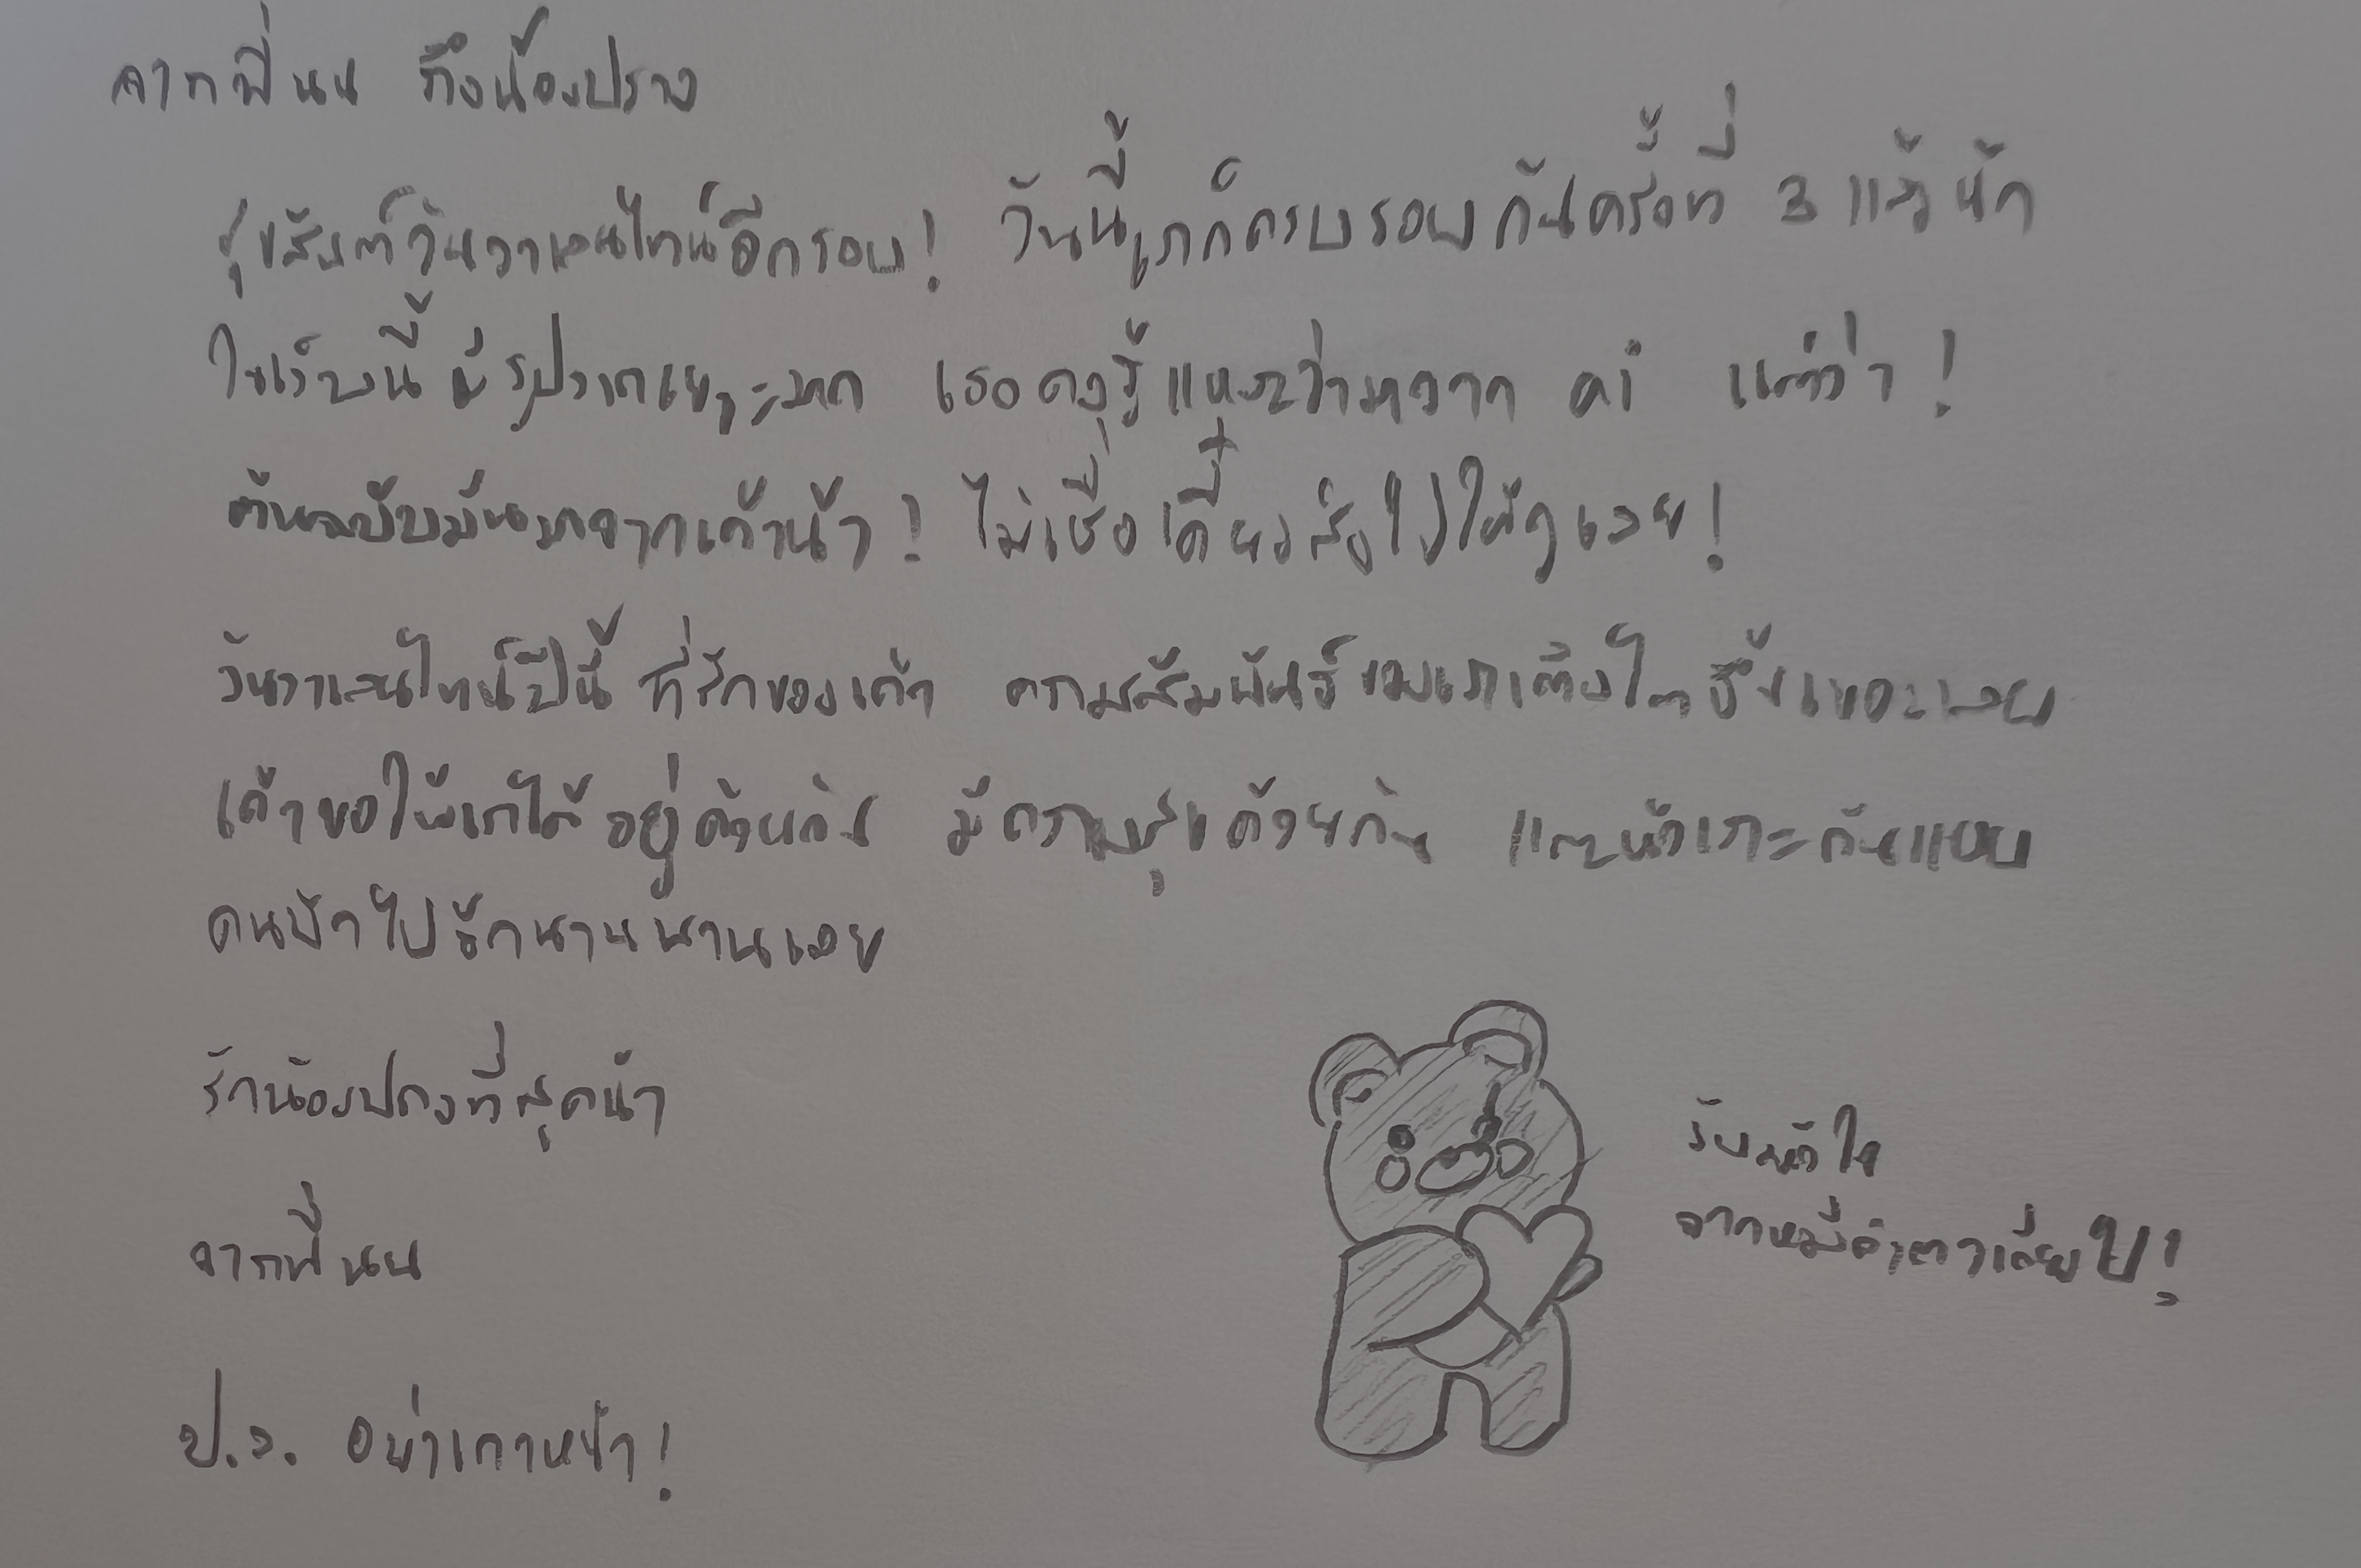 จากพี่นน ถึงน้องปราง
สุขสันต์วันวาเลนไทน์อีกรอบ! วันนี้เราก็ครบรอบกันครั้งที่ 3 แล้วน้า
ในเว็บนี้มีรูปเราเยอะมาก เธอคงรู้แหละว่ามาจาก ai แต่ว่า!
ต้นฉบับมันมาจากเค้าน้า! ไม่เชื่อเดี๋ยวส่งไปให้ดูเลย!
วันวาเลนไทน์ปีนี้ ที่รักของเค้า ความสัมพันธ์ของเราเติบโตขึ้นเยอะเลย
เค้าขอให้เราได้อยู่ด้วยกัน มีความสุขด้วยกัน และหัวเราะกันแบบ
คนบ้าไปอีกนานนานเลย
รักน้องปรางที่สุดน้า
จากพี่นน
รับหัวใจ
จากหมีดำตาเดียวไป!
ป.ล. อย่าเกาหน้า!